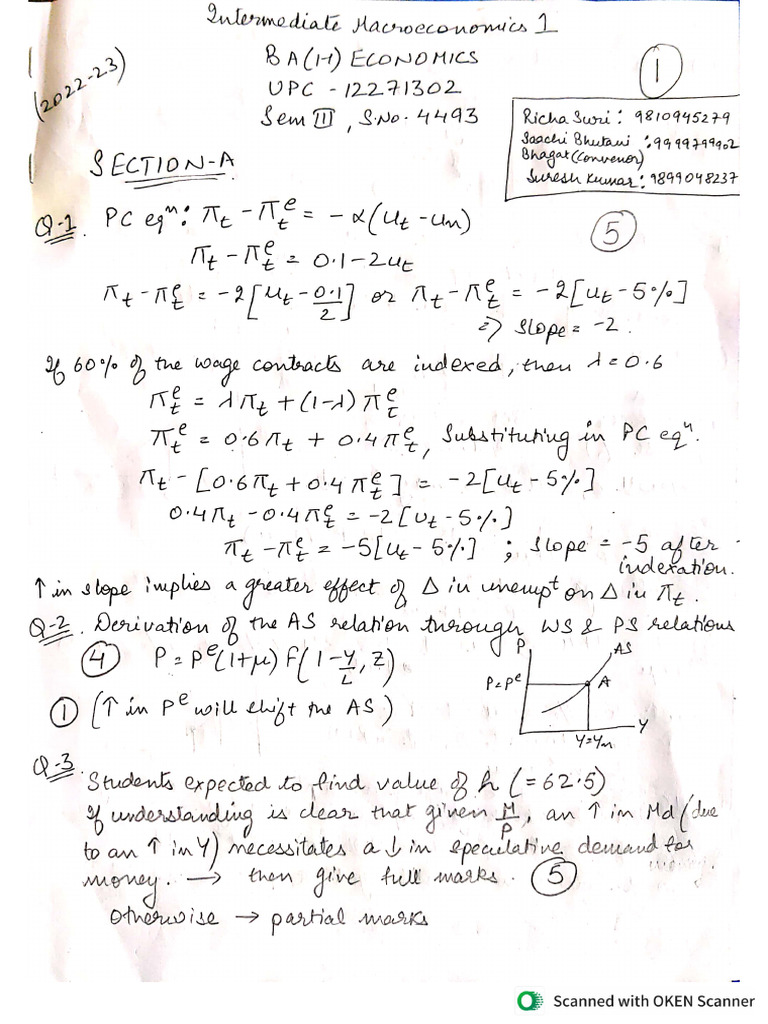 Intermediate Macroeconomics 1
(2022-23)
BA(H) ECONOMICS
UPC - 12271302
Sem III, S.No. 4493
1
Richa Suri: 9810945279
Saachi Bhutani :9999799902
Bhagat(Convenor)
Suresh Kumar: 9899048237
SECTION-A
Q-1. PC eqⁿ: πt - πt^e = -α(ut - un)
5
πt - πt^e = 0.1 - 2ut
πt - πt^e = -2[ut - 0.1/2] or πt - πt^e = -2[ut - 5%]
=> slope = -2.
If 60% of the wage contracts are indexed, then λ = 0.6
πt^e = λπt + (1-λ)πt^e
πt^e = 0.6πt + 0.4πt^e, Substituting in PC eqⁿ.
πt - [0.6πt + 0.4πt^e] = -2[ut - 5%]
0.4πt - 0.4πt^e = -2[ut - 5%]
πt - πt^e = -5[ut - 5%] ; slope = -5 after
indexation.
↑ in slope implies a greater effect of Δ in unempt on Δ in πt.
Q-2. Derivation of the AS relation through WS & PS relations
4 P = P^e(1+μ) F(1 - Y/L, Z)
P
AS
P=P^e
A
Y
Y=Yn
1 (↑ in P^e will shift the AS)
Q-3
Students expected to find value of h (=62.5)
If understanding is clear that given M/P, an ↑ in Md (due
to an ↑ in Y) necessitates a ↓ in speculative demand for
money. → then give full marks. 5
Otherwise → partial marks
Scanned with OKEN Scanner